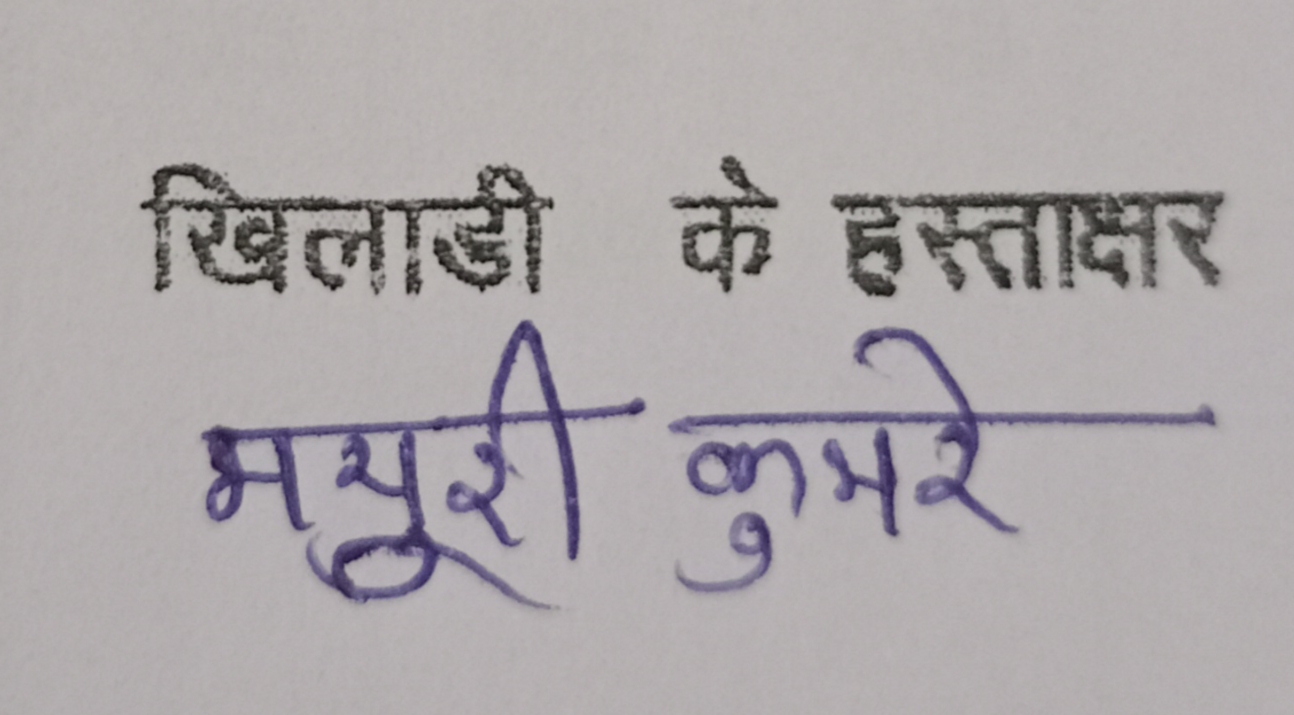 खिलाडी के हस्ताक्षर
मयुरी कुमरे